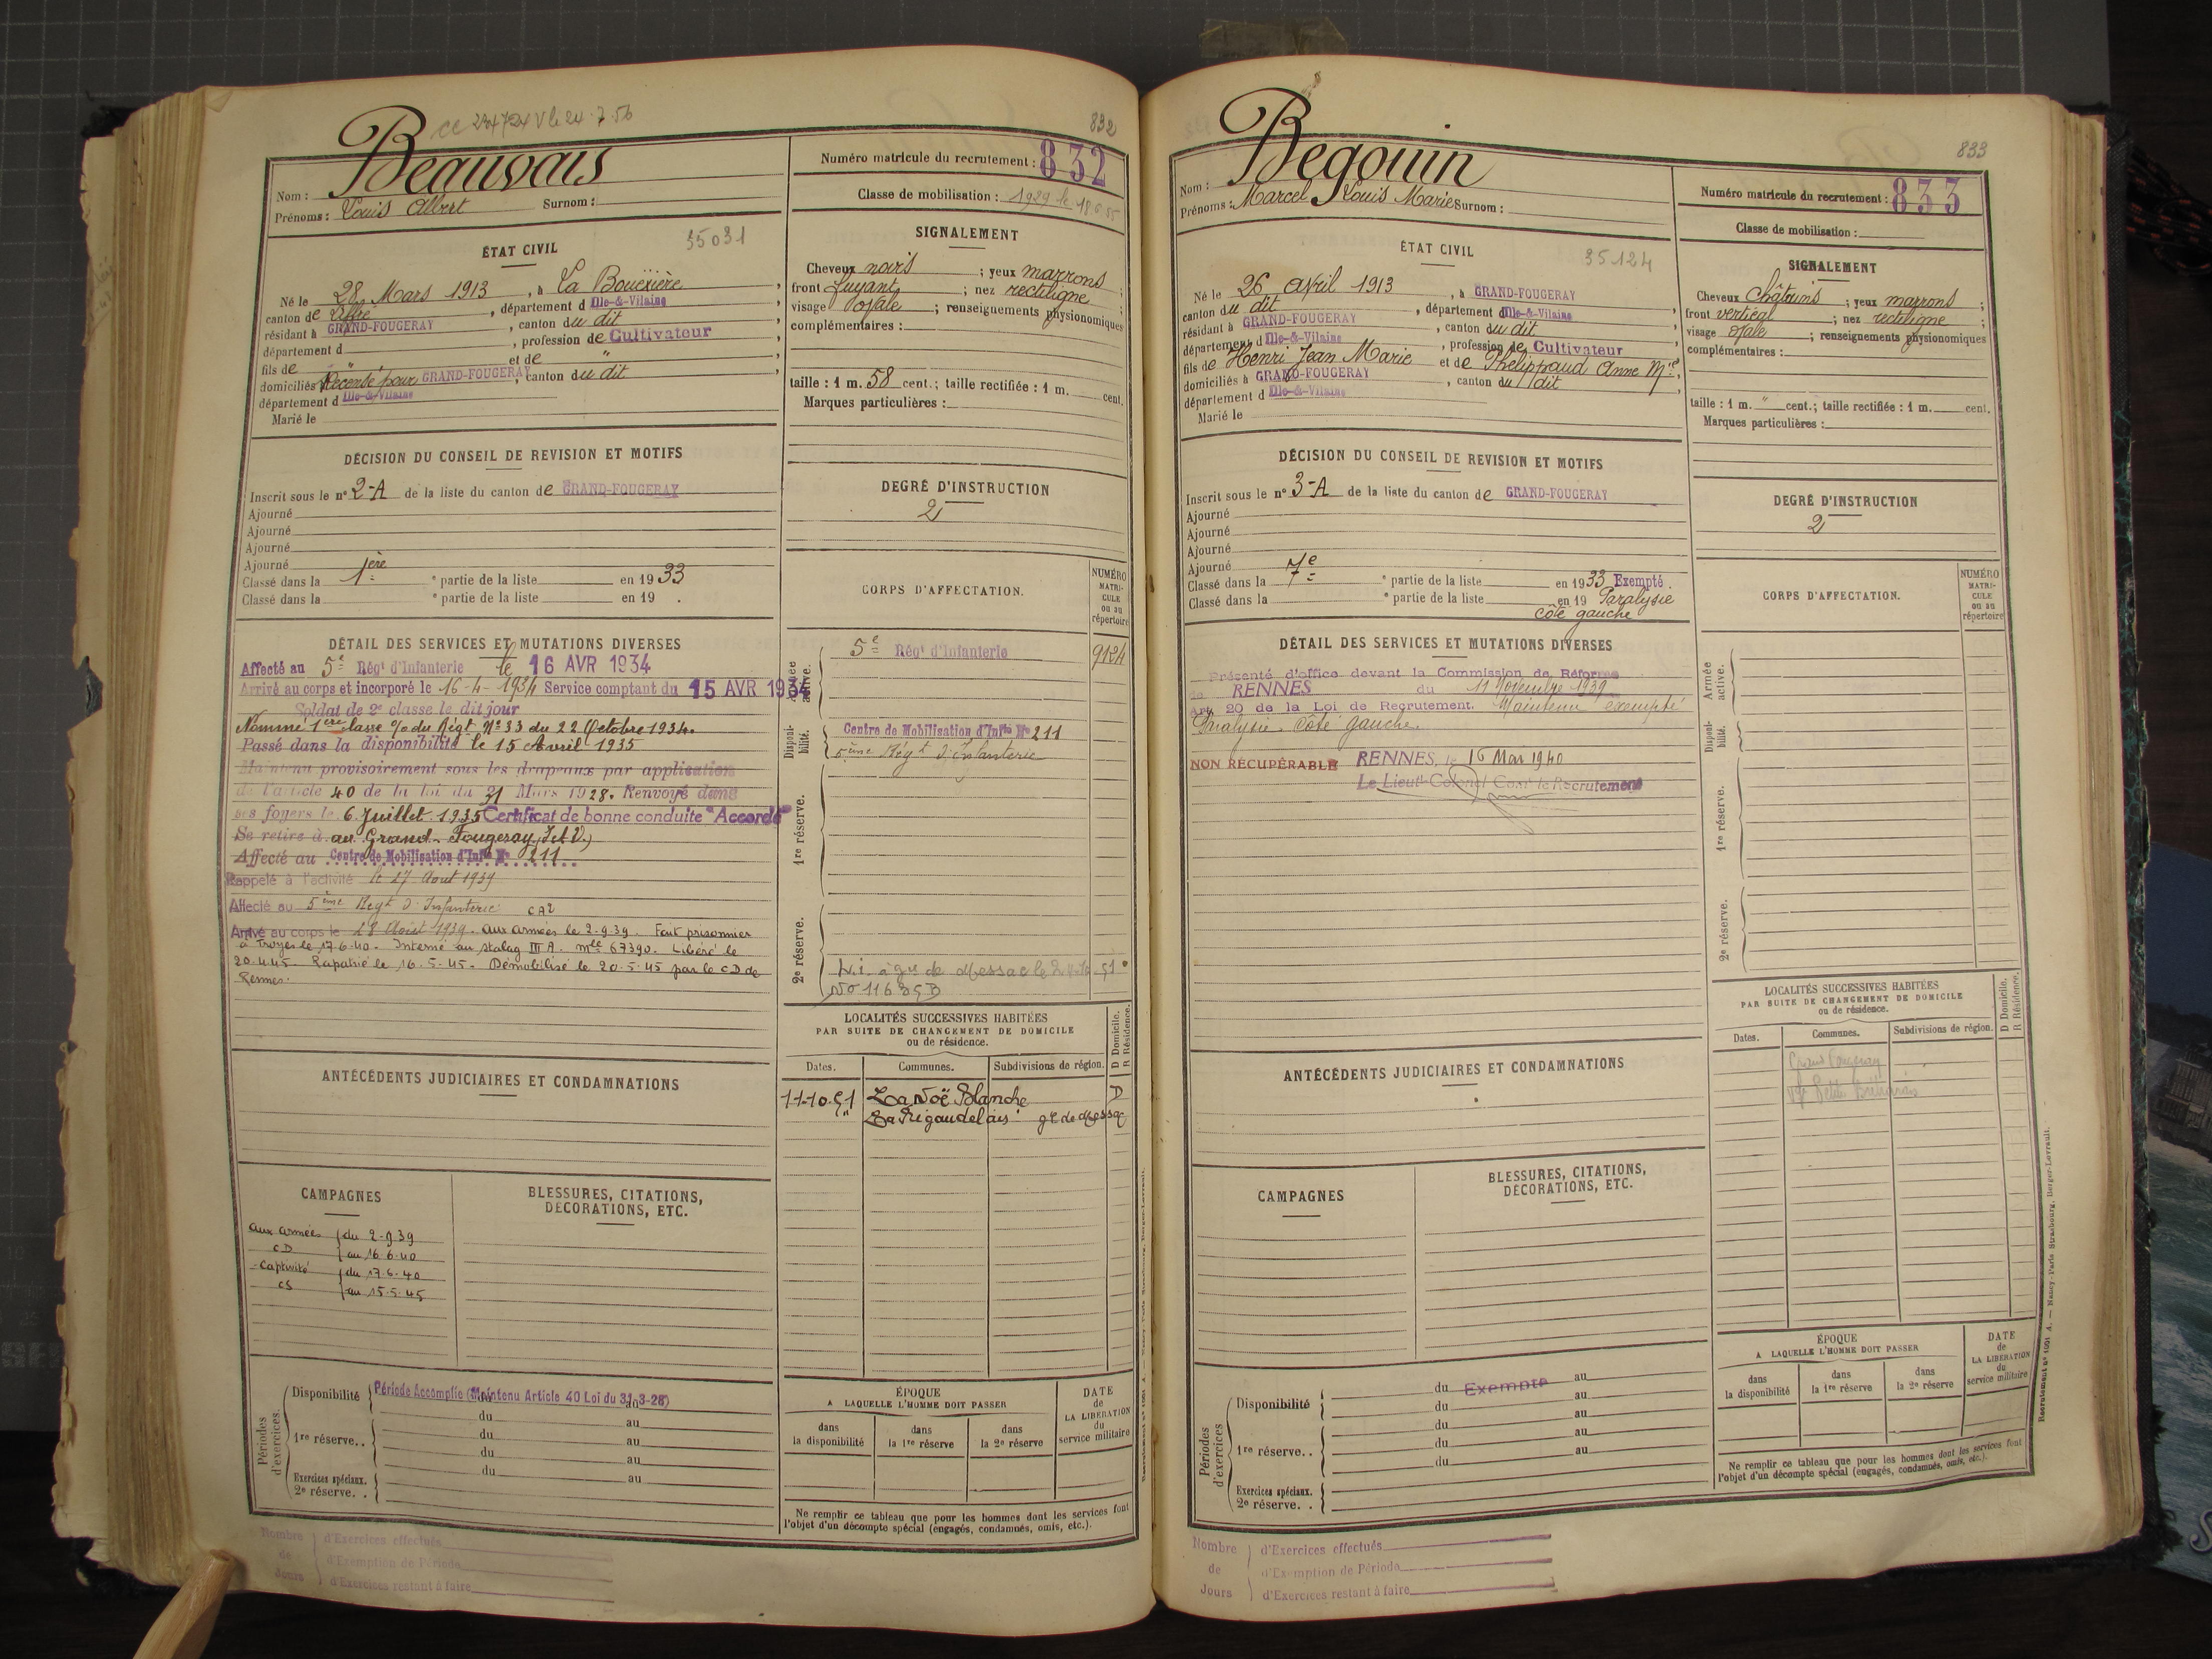 832
Nom : Beauvais
Prénoms : Louis Albert Surnom :
Numéro matricule du recrutement : 832
Classe de mobilisation : 1929 le
ÉTAT CIVIL
35031
Né le 28 Mars 1913, à La Bouëxière,
canton de Liffré, département d Ille-&-Vilaine
résidant à GRAND-FOUGERAY, canton du dit,
département d , profession de Cultivateur,
fils de " et de "
domiciliés Recensé pour GRAND-FOUGERAY, canton du dit
département d Ille-&-Vilaine
Marié le
SIGNALEMENT
Cheveux noirs ; yeux marrons ;
front fuyant ; nez rectiligne ;
visage ovale ; renseignements physionomiques
complémentaires :
taille : 1 m. 58 cent.; taille rectifiée : 1 m. cent.
Marques particulières :
DÉCISION DU CONSEIL DE REVISION ET MOTIFS
Inscrit sous le n° 2-A de la liste du canton de GRAND-FOUGERAY
Ajourné
Ajourné
Ajourné
Ajourné
Classé dans la 1ère ° partie de la liste en 1933
Classé dans la ° partie de la liste en 19 .
DEGRÉ D'INSTRUCTION
2
DÉTAIL DES SERVICES ET MUTATIONS DIVERSES
Affecté au 5e Régt d'Infanterie le 16 AVR 1934
Arrivé au corps et incorporé le 16-4-1934 Service comptant du 15 AVR 1934
Soldat de 2e classe le dit jour
Nommé 1ère classe o/o du Régt N° 33 du 22 Octobre 1934.
Passé dans la disponibilité le 15 Avril 1935
Maintenu provisoirement sous les drapeaux par application
de l'article 40 de la loi du 31 Mars 1928. Renvoyé dans
ses foyers le 6 Juillet 1935 Certificat de bonne conduite "Accordé"
Se retire à au Grand-Fougeray, I et V.)
Affecté au Centre de Mobilisation d'Infie N° 211
Rappelé à l'activité le 27 Aout 1939
Affecté au 5ème Regt d'Infanterie CA2
Arrivé au corps le 28 Août 1939. aux armées le 2-9-39. Fait prisonnier
à Troyes le 17-6-40. Interné au stalag III A. mle 67390. Libéré le
20-4-45. Rapatrié le 16-5-45. Démobilisé le 20-5-45 par le CD de
Rennes.
CORPS D'AFFECTATION.
NUMÉRO MATRICULE ou au répertoire
Armée active.
5e Régt d'Infanterie 9124
Disponibilité.
Centre de Mobilisation d'Infie N° 211
5ème Régt d'Infanterie
1re réserve.
2e réserve.
LOCALITÉS SUCCESSIVES HABITÉES
PAR SUITE DE CHANGEMENT DE DOMICILE
ou de résidence.
D Domicile.
R Résidence.
Dates. Communes. Subdivisions de région.
11-10-51 La Noë Blanche D
La Rigaudelais ge de Messac
ANTÉCÉDENTS JUDICIAIRES ET CONDAMNATIONS
CAMPAGNES
aux armées du 2-9-39
CD au 16-6-40
captivité du 17-6-40
CS au 15-5-45
BLESSURES, CITATIONS,
DÉCORATIONS, ETC.
Périodes d'exercices.
Disponibilité Période Accomplie (Maintenu Article 40 Loi du 31-3-28)
du au
1re réserve. . du au
du au
du au
Exercices spéciaux.
2e réserve. .
du au
ÉPOQUE
A LAQUELLE L'HOMME DOIT PASSER
dans la disponibilité
dans la 1re réserve
dans la 2e réserve
DATE de LA LIBÉRATION du service militaire
Ne remplir ce tableau que pour les hommes dont les services font
l'objet d'un décompte spécial (engagés, condamnés, omis, etc.).
Nombre de Jours
d'Exercices effectués
d'Exemption de Période
d'Exercices restant à faire
833
Nom : Begouin
Prénoms : Marcel Louis Marie Surnom :
Numéro matricule du recrutement : 833
Classe de mobilisation :
ÉTAT CIVIL
35124
Né le 26 avril 1913, à GRAND-FOUGERAY
canton du dit, département d Ille-&-Vilaine
résidant à GRAND-FOUGERAY, canton du dit,
département d Ille-&-Vilaine, profession de Cultivateur
fils de Henri Jean Marie et de Phelippaud Anne Mie,
domiciliés à GRAND-FOUGERAY, canton du dit,
département d Ille-&-Vilaine
Marié le
SIGNALEMENT
Cheveux châtains ; yeux marrons ;
front vertical ; nez rectiligne ;
visage ovale ; renseignements physionomiques
complémentaires :
taille : 1 m. " cent.; taille rectifiée : 1 m. cent.
Marques particulières :
DÉCISION DU CONSEIL DE REVISION ET MOTIFS
Inscrit sous le n° 3-A de la liste du canton de GRAND-FOUGERAY
Ajourné
Ajourné
Ajourné
Ajourné
Classé dans la 7e ° partie de la liste en 1933 Exempté.
Classé dans la ° partie de la liste en 19 Paralysie
côté gauche
DEGRÉ D'INSTRUCTION
2
DÉTAIL DES SERVICES ET MUTATIONS DIVERSES
Présenté d'office devant la Commission de Réforme
de RENNES du 11 Novembre 1939
Art. 20 de la Loi de Recrutement. Maintenu exempté
Paralysie côté gauche.
NON RÉCUPÉRABLE RENNES, le 16 Mai 1940
Le Lieut-Colonel Comt le Recrutement
CORPS D'AFFECTATION.
NUMÉRO MATRICULE ou au répertoire
Armée active.
Disponibilité.
1re réserve.
2e réserve.
LOCALITÉS SUCCESSIVES HABITÉES
PAR SUITE DE CHANGEMENT DE DOMICILE
ou de résidence.
D Domicile.
R Résidence.
Dates. Communes. Subdivisions de région.
Grand Fougeray
ANTÉCÉDENTS JUDICIAIRES ET CONDAMNATIONS
CAMPAGNES
BLESSURES, CITATIONS,
DÉCORATIONS, ETC.
Périodes d'exercices
Disponibilité du Exempté au
du au
1re réserve. . du au
du au
du au
Exercices spéciaux.
2e réserve. .
ÉPOQUE
A LAQUELLE L'HOMME DOIT PASSER
dans la disponibilité
dans la 1re réserve
dans la 2e réserve
DATE de LA LIBÉRATION du service militaire
Ne remplir ce tableau que pour les hommes dont les services font
l'objet d'un décompte spécial (engagés, condamnés, omis, etc.).
Recrutement n° 1091 A. — Nancy-Paris Strasbourg, Berger-Levrault.
Nombre de Jours
d'Exercices effectués
d'Exemption de Période
d'Exercices restant à faire